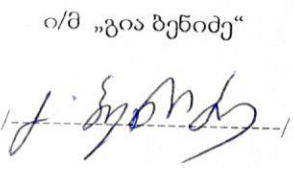 ი/მ „გია ბენიძე“